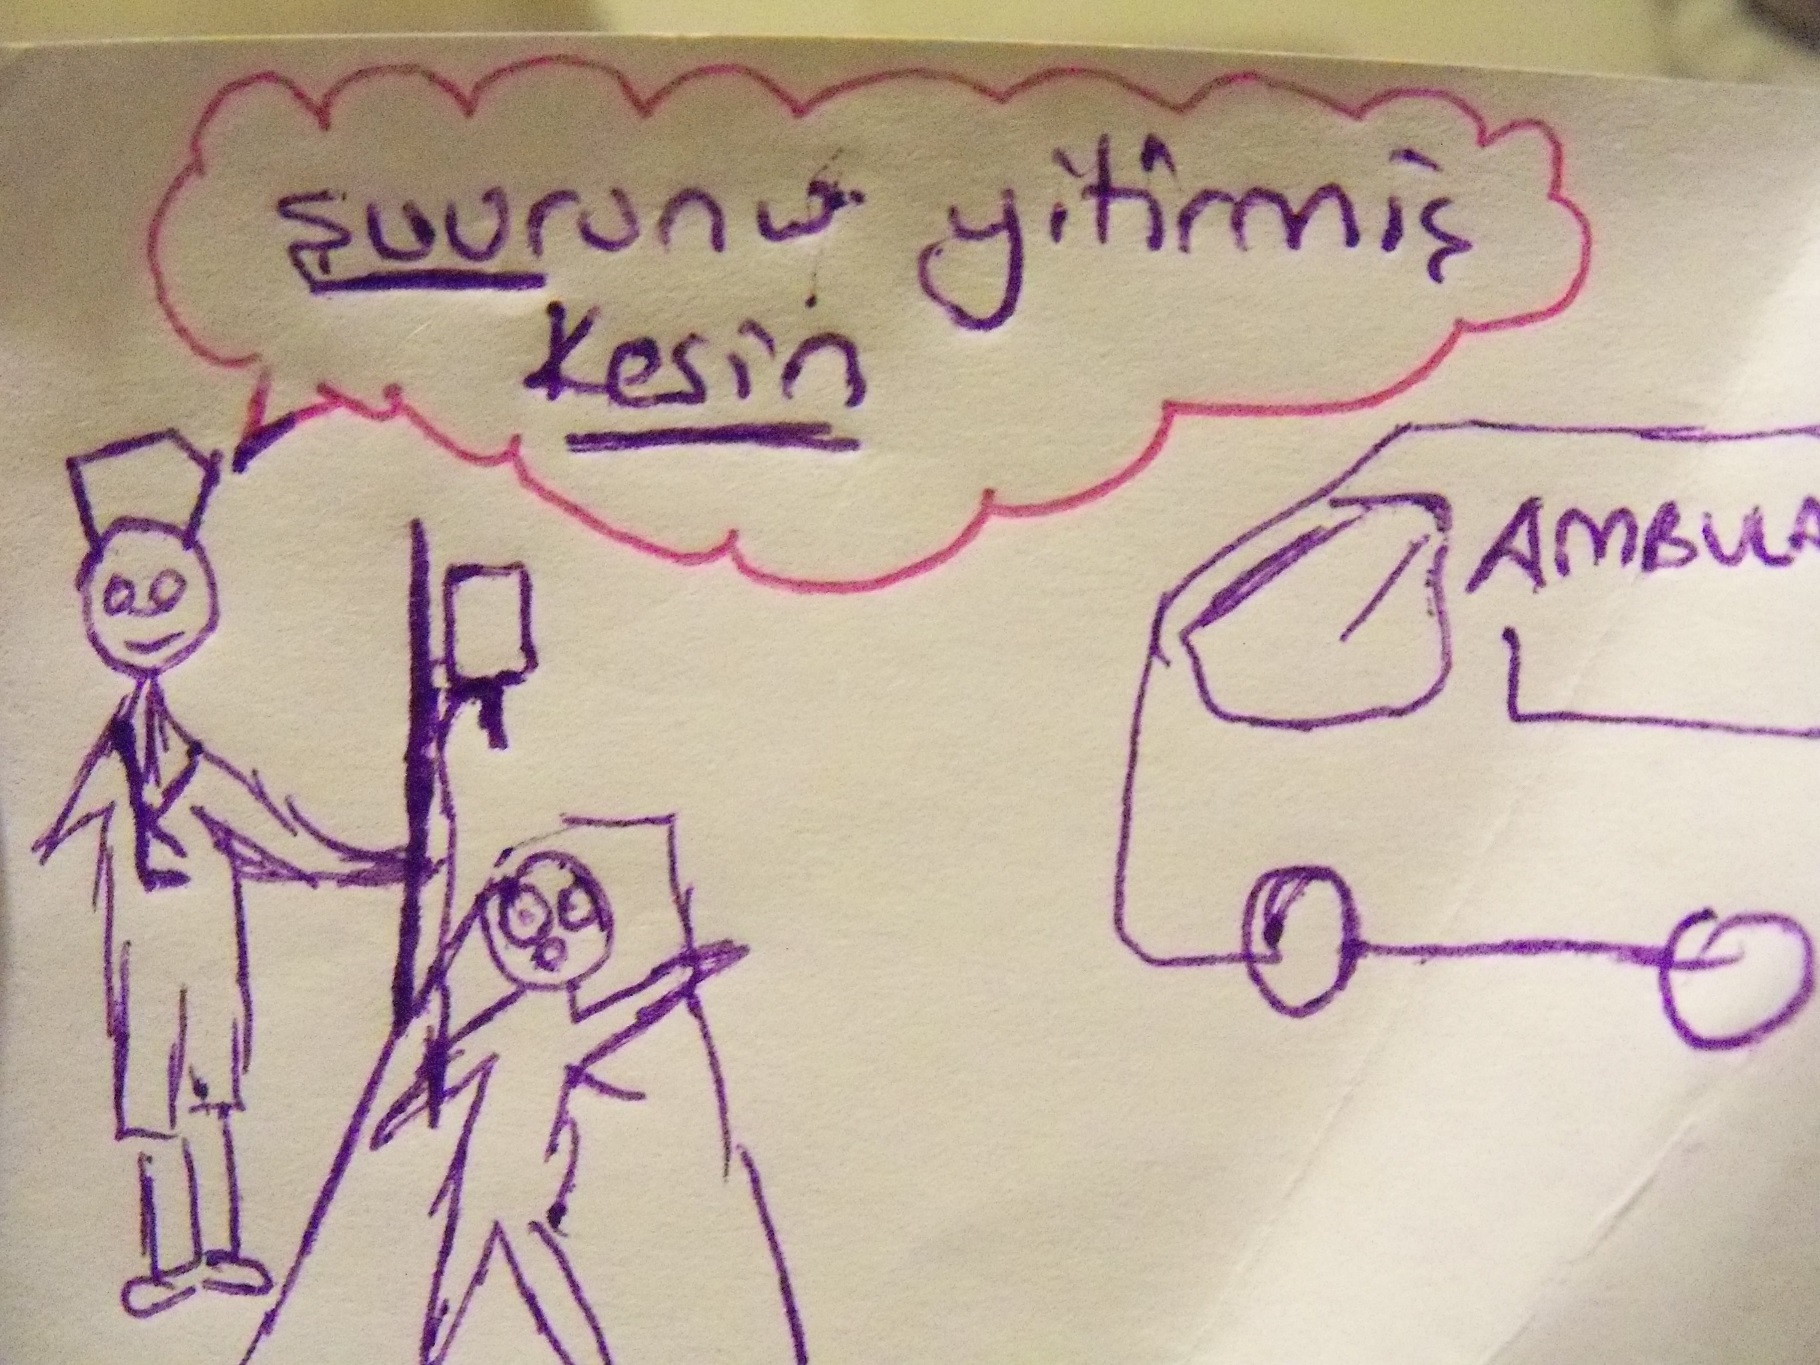 şuurunu yitirmiş
Kesin
AMBULA